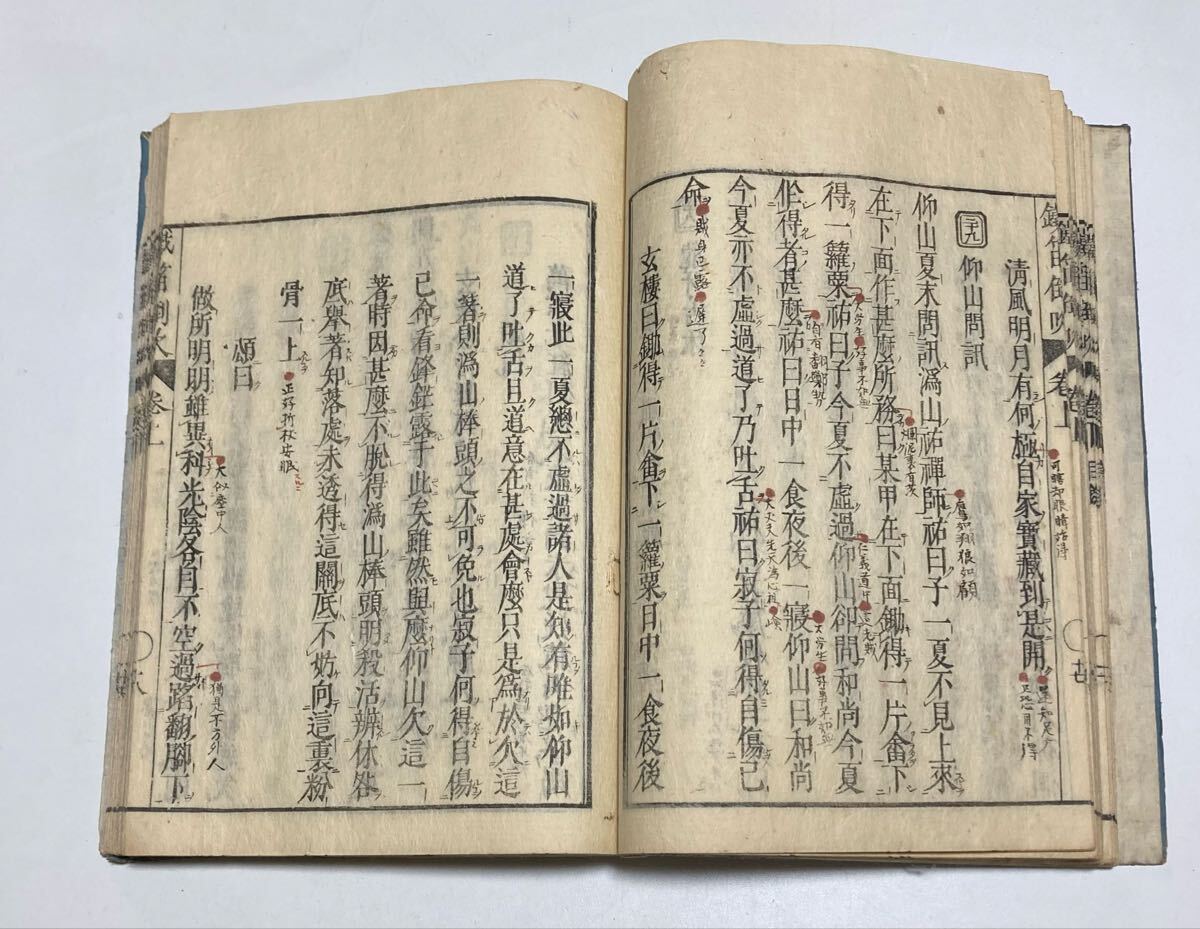 清風明月有何極自家寶藏到是開
三九
仰山問訊
仰山夏末問訊潙山祐禪師祐曰子一夏不見上來
在下面作甚麼所務曰某甲在下面鋤得一片畬下
得一籮粟祐曰子今夏不虛過仰山卻問和尚今夏
作得者甚麼祐曰日中一食夜後一寢仰山曰和尚
今夏亦不虛過道了乃吐舌祐曰寂子何得自傷己
命
玄樓曰鋤得一片畬下一籮粟日中一食夜後
一寢此一夏總不虛過諸人是知有雖如仰山
道了吐舌且道意在甚處會麼只是為於欠這
一著則潙山棒頭之不可免也寂子何得自傷
己命看鋒鋩露于此矣雖然與麼仰山欠這一
著時因甚麼不脫得潙山棒頭明殺活辨休咎
底舉著知落處未透得這關底不妨向這裏粉
骨一上
頌曰
做所明明雖異科光陰各自不空過踏翻腳下
鐵笛倒吹
卷上